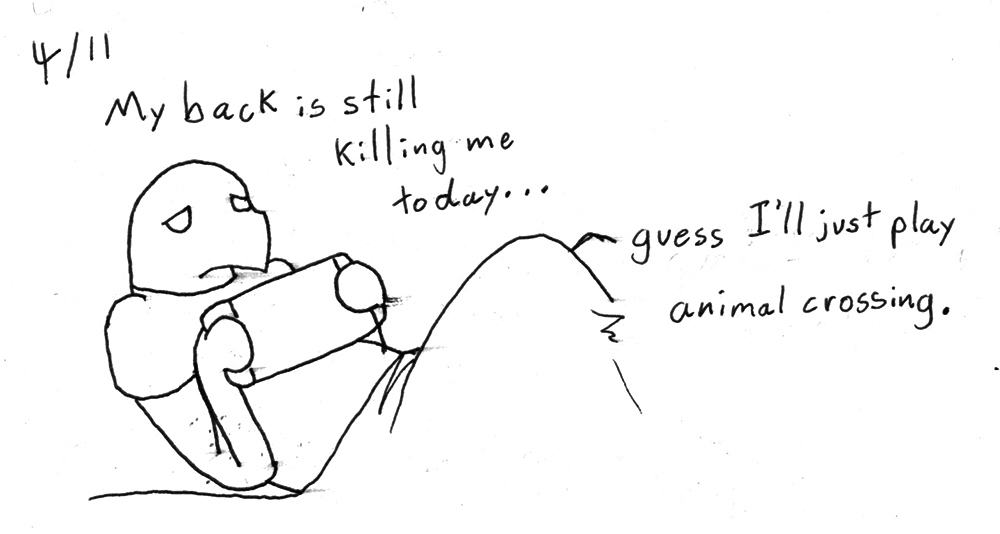 4/11
My back is still
killing me
today...
guess I'll just play
animal crossing.